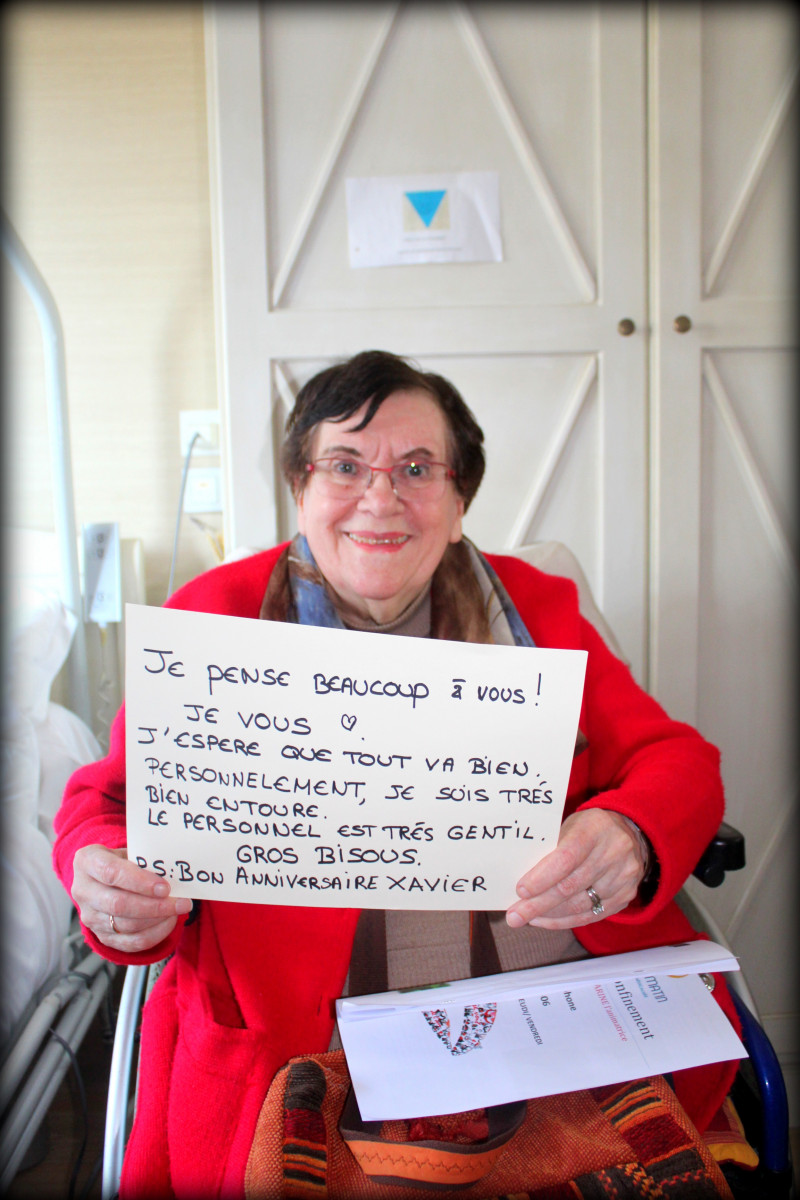 Je PENSE BEAUCOUP à VOUS !
JE VOUS ♡.
J'ESPERE QUE TOUT VA BIEN.
PERSONNELEMENT, JE SUIS TRÉS
BIEN ENTOURE.
LE PERSONNEL EST TRÉS GENTIL.
GROS BISOUS.
P.S: BON ANNIVERSAIRE XAVIER
MATIN
onfinement
ARINE l'animatrice
hone
06
EUDI/ VENDREDI